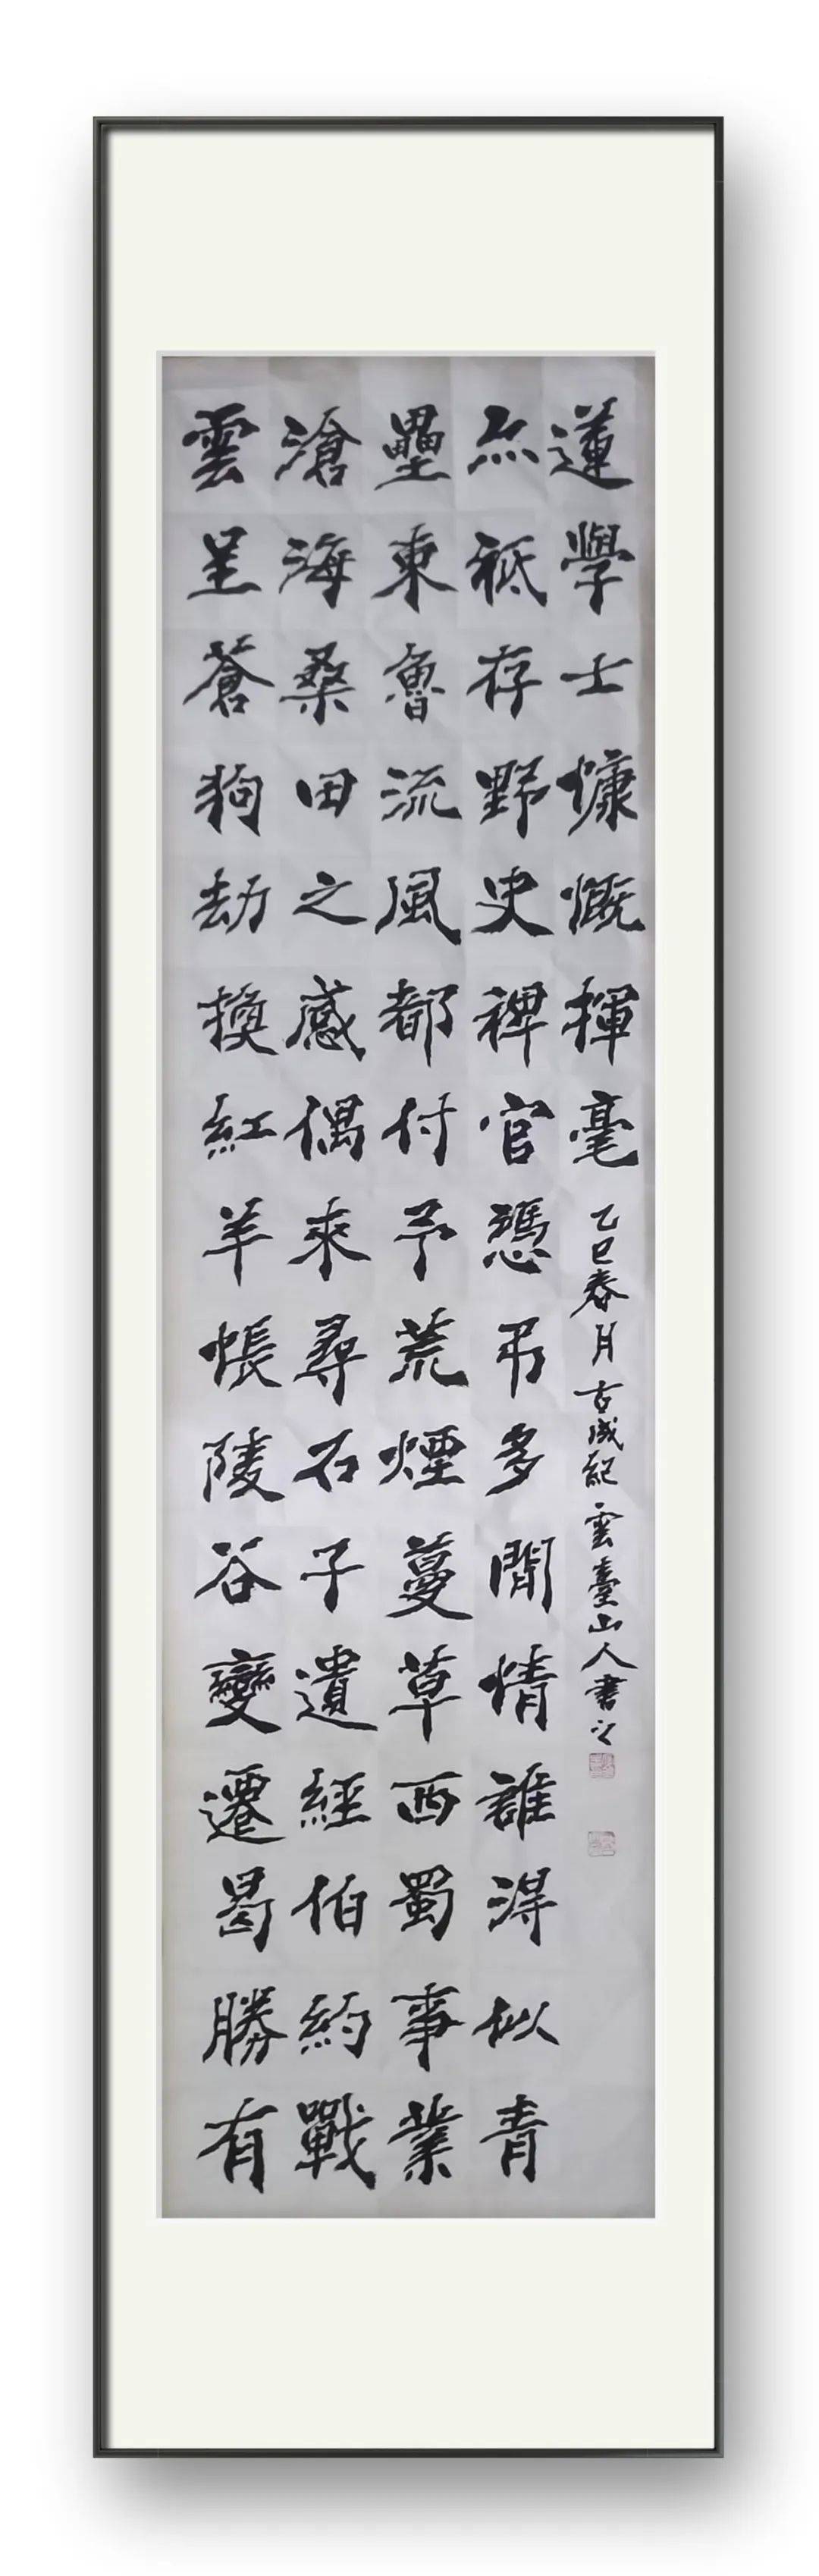 雲呈蒼狗劫換紅羊悵陵谷變遷曷勝有
滄海桑田之感偶來尋石子遺經伯約戰
壘東魯流風都付予荒煙蔓草西蜀事業
亦祗存野史稗官憑弔多閒情誰得似青
蓮學士慷慨揮毫 乙巳春月古成紀雲臺山人書之